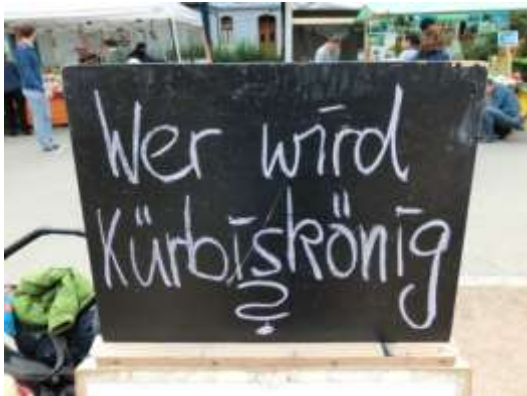 Wer wird
Kürbiskönig
?